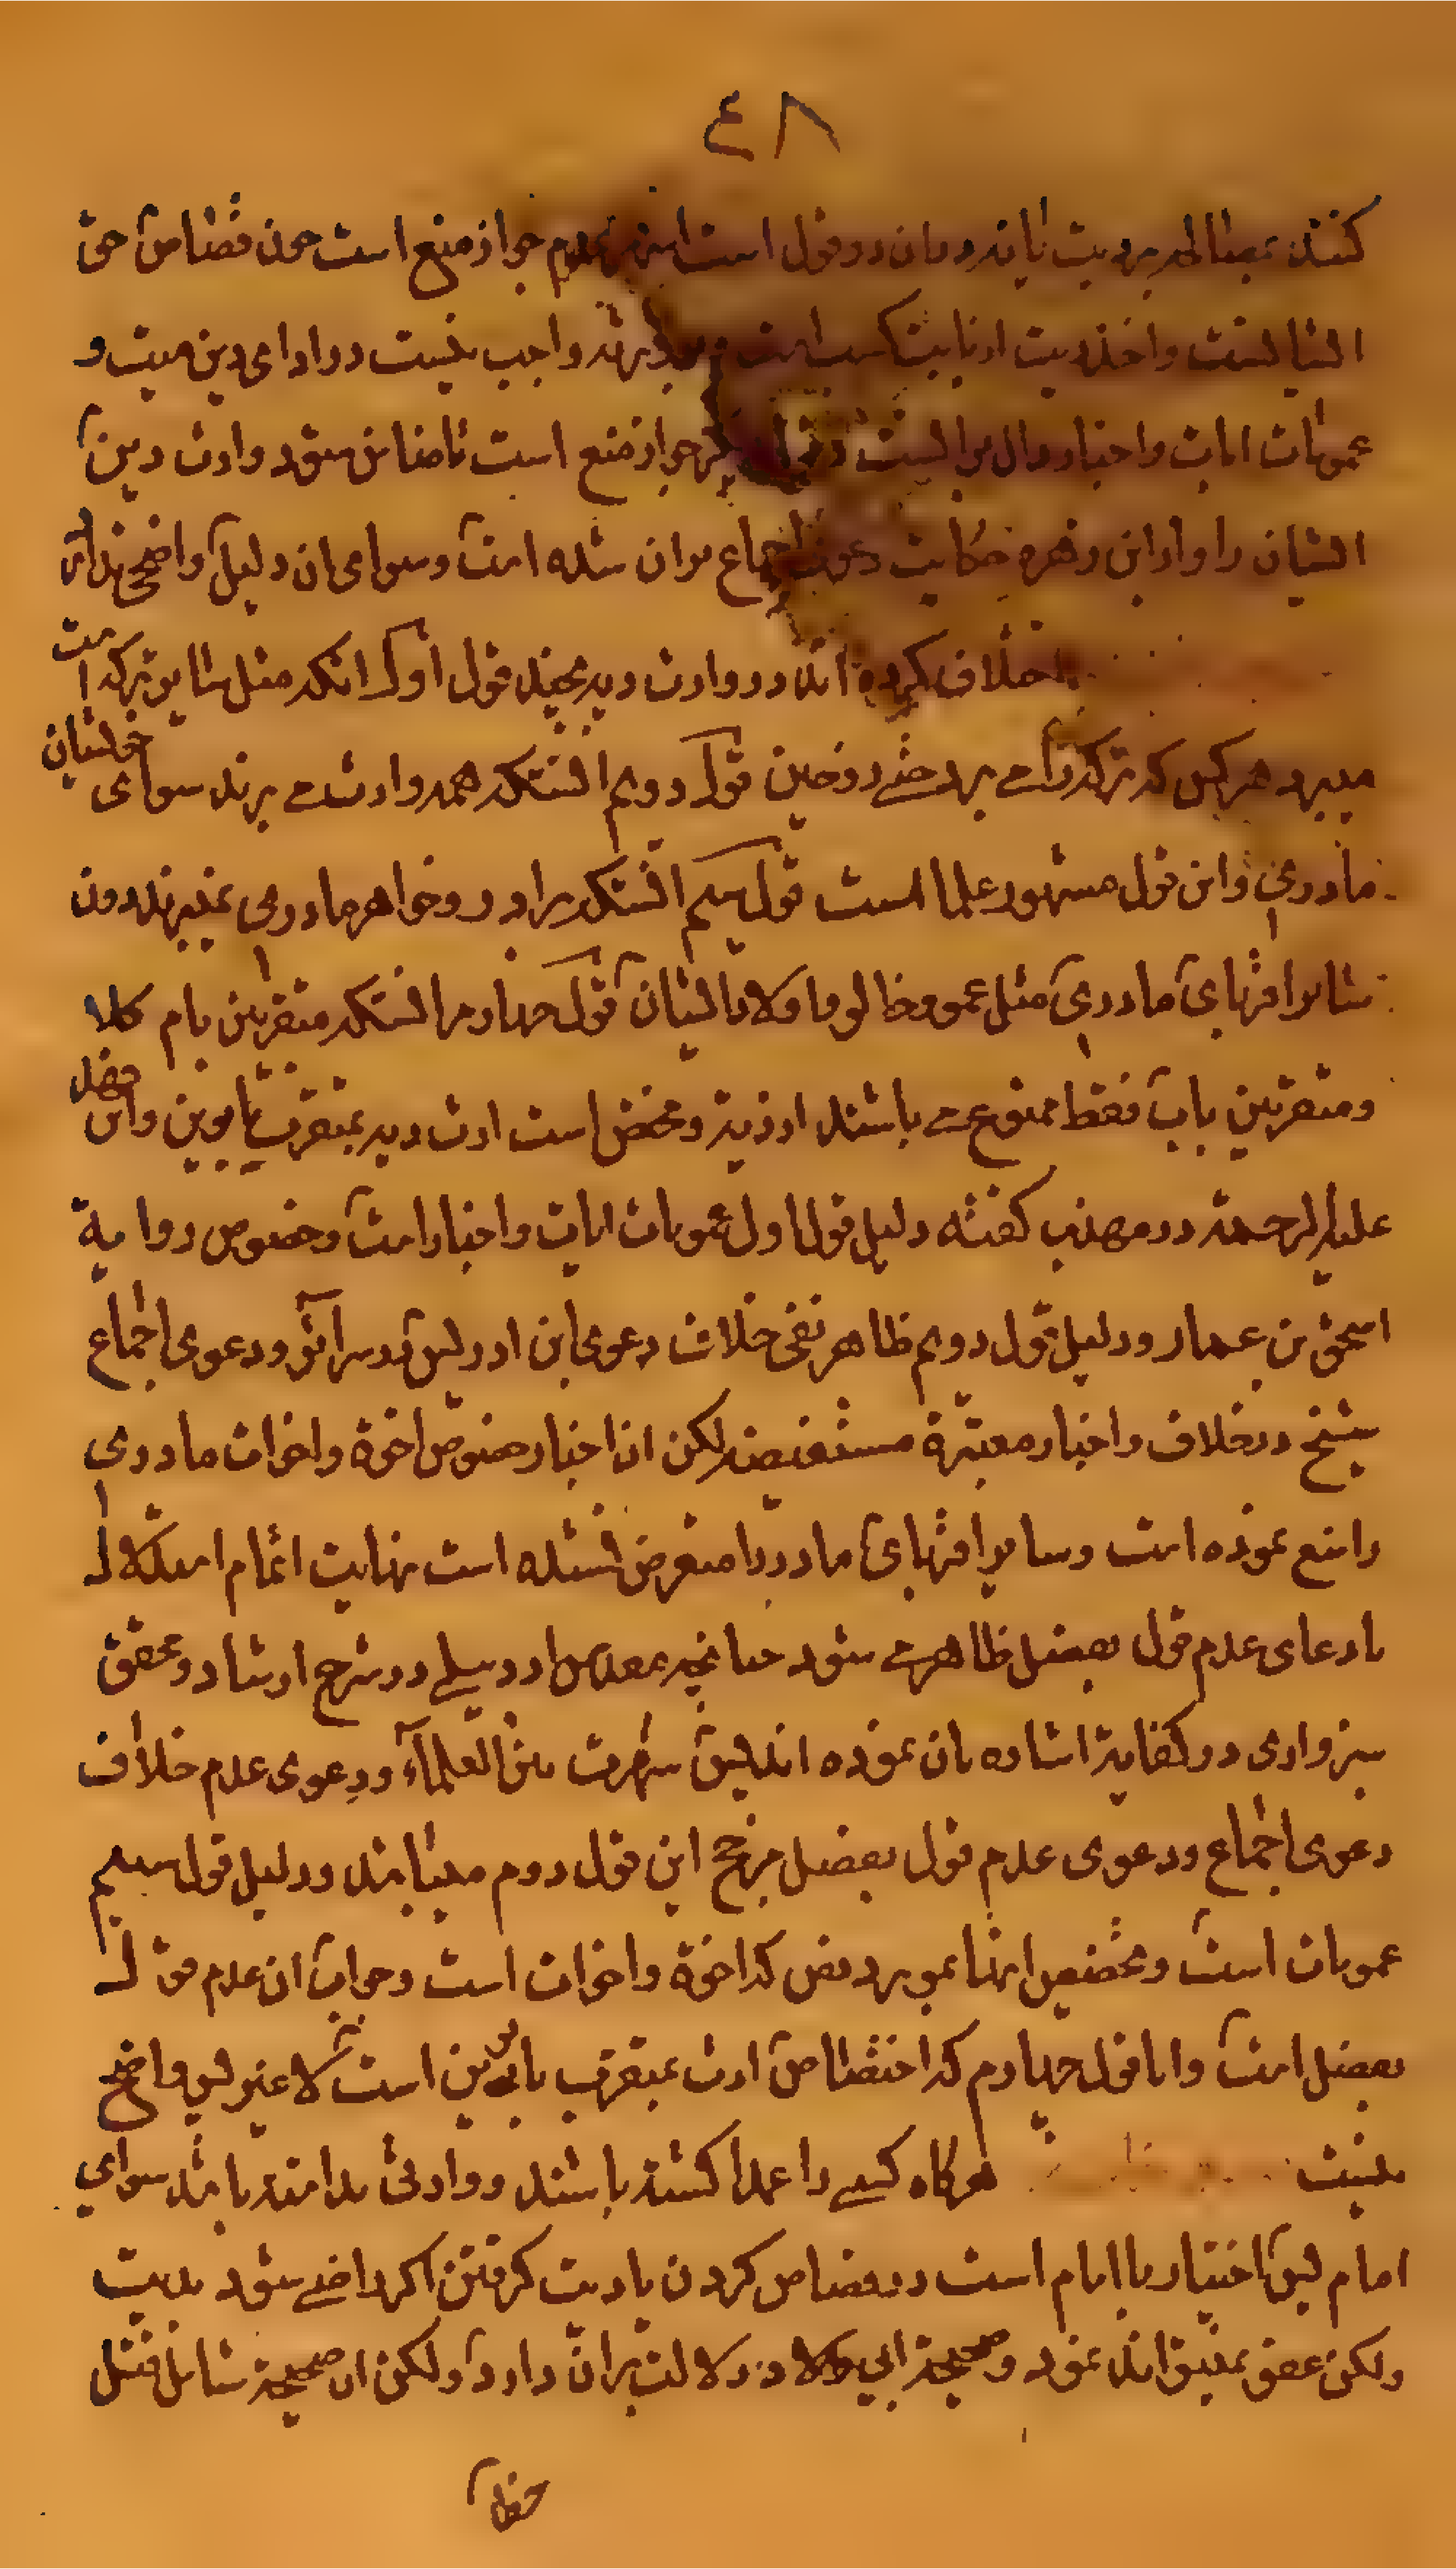 ٤٨
کنند بمطالبه دیت یا نه در ان دو قول است عدم جواز منع است چون قصاص حق
ایشانست واخذ دیت واجب نیست در ادای دین میت و
عمومات ایات واخبار دال برانست جواز منع است تا ضامن شود وارث دین
ایشان را واز ابن زهره حکایت دعوی اجماع بران شده است وسوای ان دلیل واضحی ندارد
اختلاف کرده اند در وارث دیه بچند قول اول انکه مثل سایر ترکه است
میبرد هر کس که ترکه را مے برد حتے زوجین قول دویم انستکه همه وارث مے برند سوای خویشان
مادری واین قول مشهور علما است قول سیم انستکه برادر وخواهر مادری نمیبرند دون
سایر اقربای مادری مثل عمو وخالو واولاد ایشان قول چهارم انستکه متقربین بام کلا
ومتقربین باب فقط ممنوع مے باشند از دیه ومختص است ارث دیه بمتقرب بابوین واین قول
علیه الرحمة در مهذب کفته دلیل قول اول عمومات ایات واخبار است وخصوص روایة
اسحق بن عمار ودلیل قول دویم ظاهر نفی خلاف دعوی ابن ادریس در سرائر ودعوی اجماع
شیخ در خلاف واخبار معتبرة مستفیضه لکن ان اخبار خصوص اخوة واخوات مادری
را منع نموده است وسایر اقربای مادریرا متعرض نشده است نهایت اتمام استدلال
بادعای عدم قول بفصل ظاهر مے شود چنانچه مقدس اردبیلے در شرح ارشاد ومحقق
سبزواری در کفایه اشاره بان نموده اند پس شهرت بین العلماء ودعوی عدم خلاف
دعوی اجماع ودعوی عدم قول بفصل مرجح این قول دوم میباشد ودلیل قول سیم
عمومات است وتخصیص انها بمورد نص که اخوة واخوات است وجواب ان عدم قول
بفصل است واما قول چهارم که اختصاص ارث بمتقرب بابوین است لا غیر پس واضح
نیست هرکاه کسے را عمدا کشته باشند ووارثی نداشته باشد سوای
امام پس اختیار با امام است در قصاص کردن یا دیت کرفتن اکر راضے شود بدیت
ولکن عفو نمیتواند نمود وصحیحة ابی ولاد دلالت بران دارد ولکن ان صحیحه شامل قتل
خطا